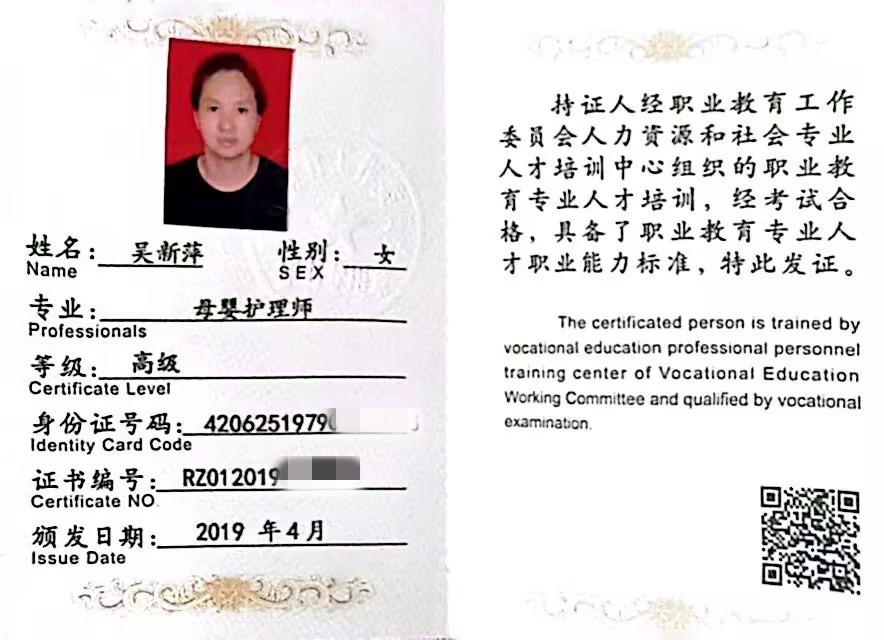 姓名：吴新萍 性别：女
Name SEX
专业：母婴护理师
Professionals
等级：高级
Certificate Level
身份证号码：4206251979
Identity Card Code
证书编号：RZ012019
Certificate NO.
颁发日期：2019 年 4 月
Issue Date
持证人经职业教育工作
委员会人力资源和社会专业
人才培训中心组织的职业教
育专业人才培训，经考试合
格，具备了职业教育专业人
才职业能力标准，特此发证。
The certificated person is trained by
vocational education professional personnel
training center of Vocational Education
Working Committee and qualified by vocational
examination.